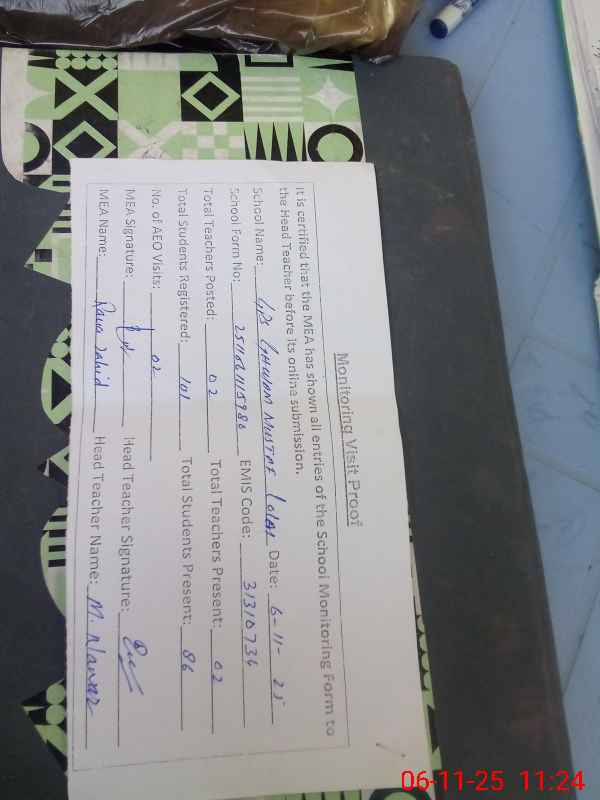 Monitoring Visit Proof
It is certified that the MEA has shown all entries of the School Monitoring Form to
the Head Teacher before its online submission.
School Name: GPS GHULAM MUSTAFE Date: 6-11-25
School Form No: EMIS Code: 31310734
Total Teachers Posted: 02 Total Teachers Present: 02
Total Students Registered: 101 Total Students Present: 86
No. of AEO Visits: 02
MEA Signature: Head Teacher Signature:
MEA Name: Rana Zahid Head Teacher Name: M. Nawaz
06-11-25 11:24